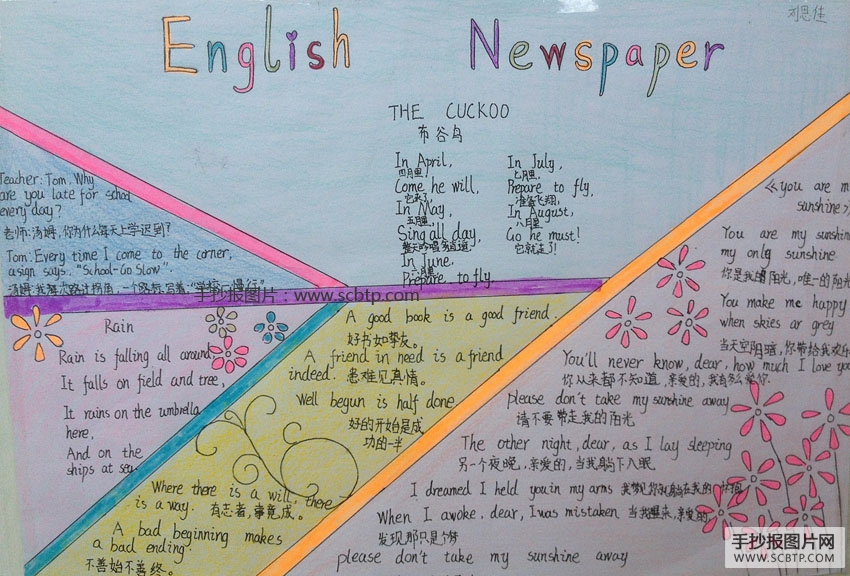 English Newspaper
刘思佳
THE CUCKOO
布谷鸟
In April,
四月里,
Come he will,
它来了,
In May,
五月里,
Sing all day,
整天吟唱多逍遥
In June,
六月里
Prepare to fly.
In July,
七月里,
Prepare to fly,
准备飞翔,
In August,
八月里
Go he must!
它就走了!
Teacher: Tom. Why
are you late for school
every day?
老师:汤姆,你为什么每天上学迟到?
Tom: Every time I come to the corner,
a sign says. "School-Go Slow".
汤姆:我每次路过拐角,一个路标写着"学校慢行"
手抄报图片:www.scbtp.com
Rain
Rain is falling all around,
It falls on field and tree,
It rains on the umbrella
here,
And on the
ships at sea
A good book is a good friend.
好书如挚友。
A friend in need is a friend
indeed. 患难见真情。
Well begun is half done
好的开始是成
功的一半
Where there is a will, there
is a way. 有志者,事竟成。
A bad beginning makes
a bad ending.
不善始不善终。
《you are m
sunshine》
You are my sunshine
my only sunshine
你是我的阳光,唯一的阳光
You make me happy
when skies ar grey
当天空阴暗,你带给我欢乐
You'll never know, dear, how much I love you
你从来都不知道,亲爱的,我有多么爱你
please don't take my sunshine away
请不要带走我的阳光
The other night, dear, as I lay sleeping
另一个夜晚,亲爱的,当我躺下入眠
I dreamed I held you in my arms 我梦见你就躺在我的怀抱
When I awoke, dear, I was mistaken 当我醒来,亲爱的,
发现那只是个梦
please don't take my sunshine away
手抄报图片网
WWW.SCBTP.COM